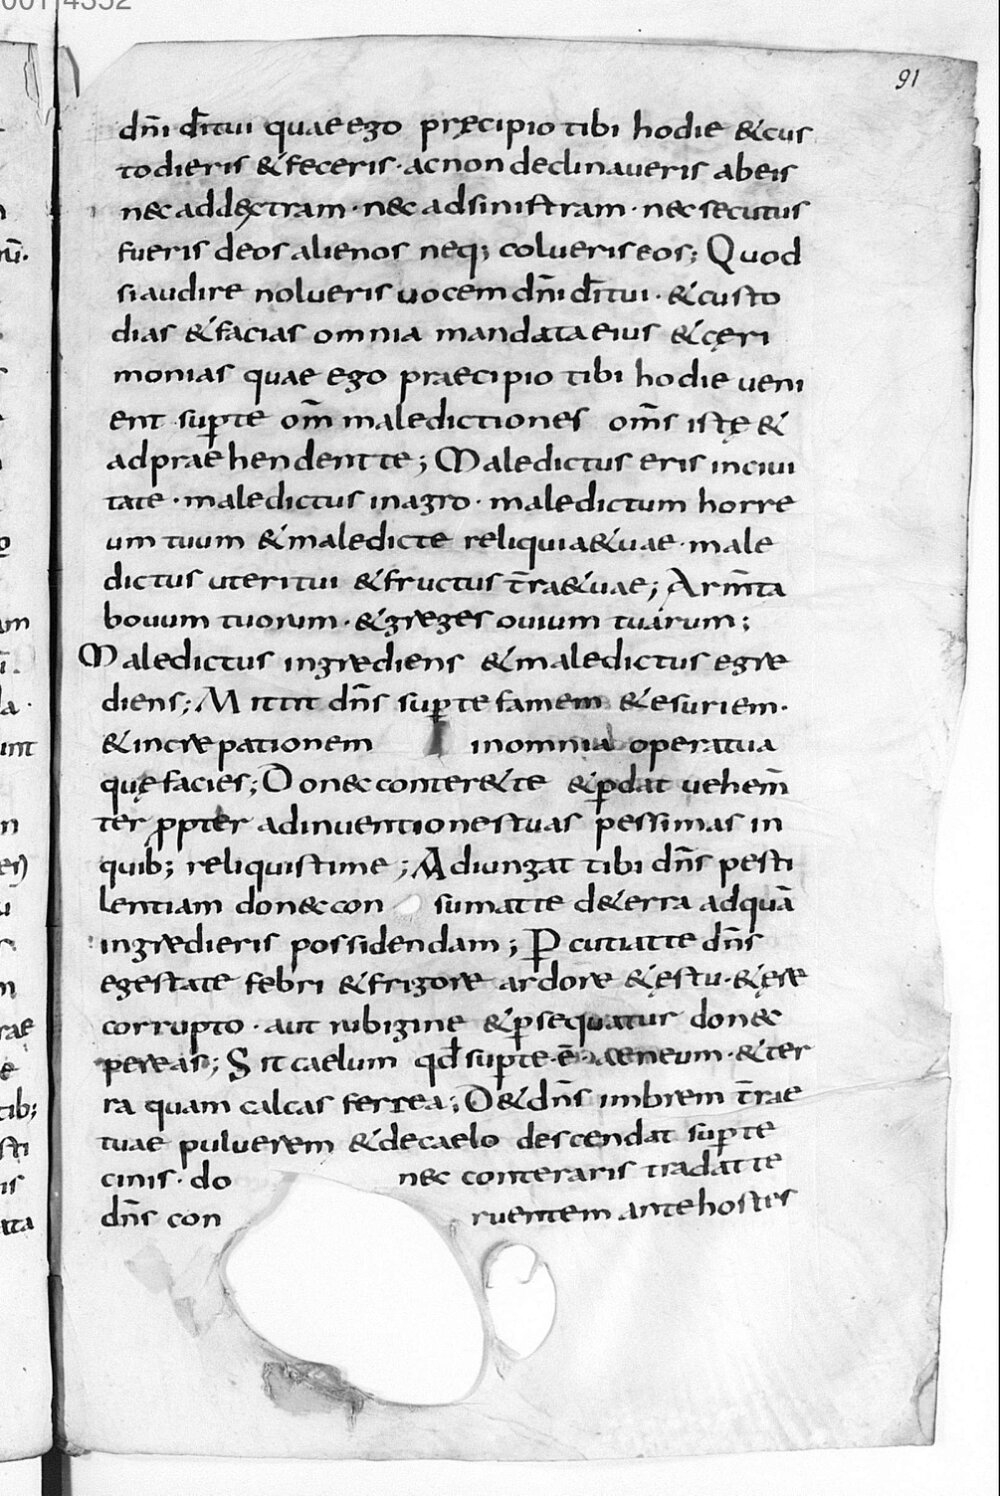 91
dn̄i d̄i tui quae ego pręcipio tibi hodie & cus
todieris & feceris · ac non declinaveris ab eis
nec ad dęxtram · nec ad sinistram · nec secutus
fueris deos alienos neq; colueris eos; Quod
si audire nolueris vocem dn̄i d̄i tui · & custo
dias & facias omnia mandata eius & cęri
monias quae ego praecipio tibi hodie veni
ent sup te om̄ maledictiones om̄s istę &
adpraehendent te; Maledictus eris in civi
tate · maledictus in agro · maledictum horre
um tuum & maledicte reliquia&uae · male
dictus uteri tui & fructus t̄ra&uae; Arm̄ta
bovum tuorum · & greges ovium tuarum;
Maledictus ingrediens & maledictus egre
diens; Mittit dn̄s sup te famem & esuriem ·
& increpationem in omnia opera tua
quę facies; Donec conter& te & pdat vehem̄
ter ppter adinventiones tuas pessimas in
quib; reliquisti me; Adiungat tibi dn̄s pesti
lentiam donec con sumat te de&erra ad quā
ingredieris possidendam; Pcutiat te dn̄s
egestate febri & frigore ardore & ęstu · & ęre
corrupto · aut rubigine & psequatur donec
pereas; Sit caelum qd̄ sup te · ē · aeneum · & ter
ra quam calcas ferrea; D& dn̄s imbrem t̄rae
tuae pulverem & de caelo descendat sup te
cinis · do nec conteraris tradat te
dn̄s con ruentem ante hostes